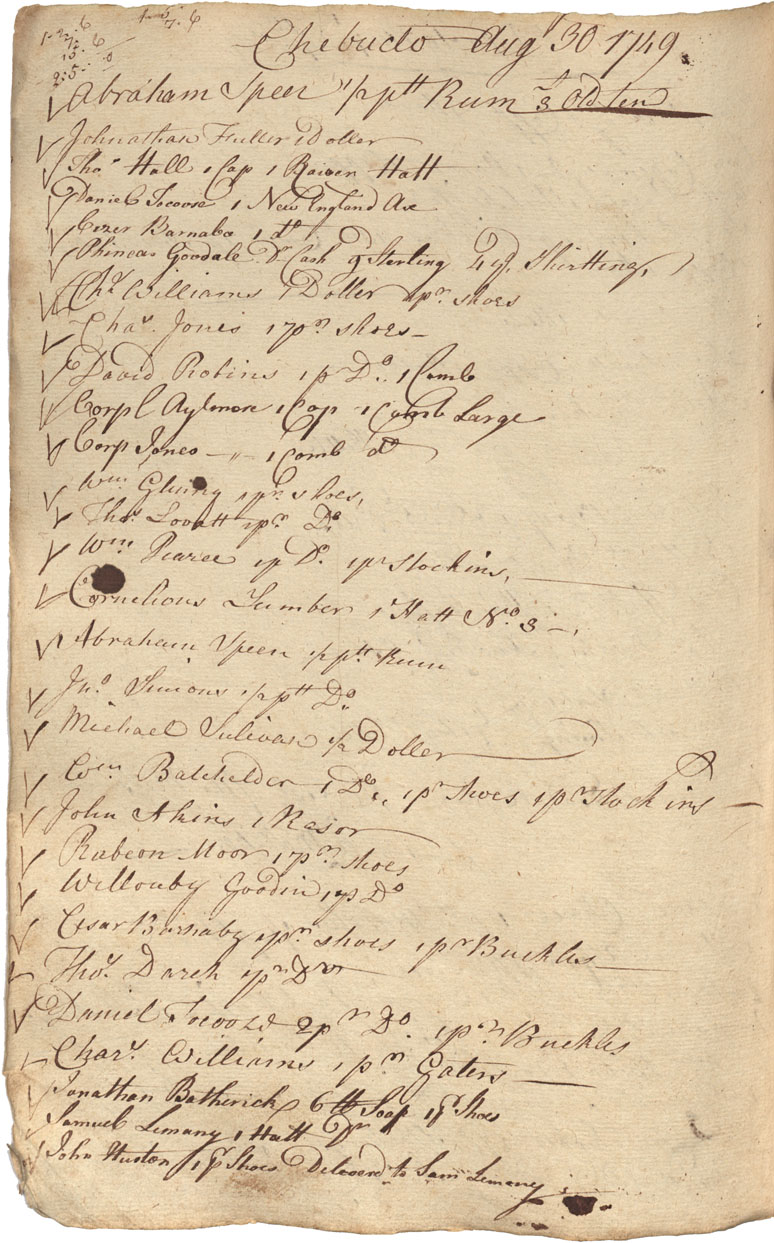 1-2-6
7-6
15-6
2:5:-0
1-5
7.6
Chebucto Augt 30 1749
Abraham Speer 1/2 ptt Rum 3 Old ten
Johnathan Fuller 1 Doller
Thos Hall 1 Cap 1 Hatt
Daniel Tocoose 1 New England Ax
Cezer Barnabe 1 do
Phineas Goodale Dr Cash 9 Sterling 4 yds Shirtting,
Chs Williams 1 Doller 1 pr Shoes
Chas. Jones 1 pr Shoes -
David Robins 1 p Do. 1 Comb
Corpl Aylmore 1 Cap - 1 Comb Large
Corp Jones - " - 1 Comb do
Wm 1 pr Shoes,
Thos Lovatt 1 pr Do
Wm Pearce 1 p Do. 1 pr Stockins,
Cornelious Lumber 1 Hatt No 3 -
Abraham Speer 1/2 ptt Rum
Jno Simons 1/2 ptt Do
Michael Sulivan 1/2 Doller
Wm Batchelder 1 Do., 1 pr Shoes 1 pr Stockins -
John Akins 1 Rasor
Rubeon Moor 1 pr Shoes
Willouby Goodin 1 p Do
Cesar Barnaby 1 pr Shoes 1 pr Buckles
Thos. Darch 1 pr Do
Daniel Tocoose 2 pr Do. 1 pr Buckles
Chars. Williams 1 pr Gaters
Jonathan Batherick 6 tt Soap 1 pr Shoes
Samuel Lemany 1 Hatt
John Huston 1 pr Shoes Deliverd to Sam Lemany